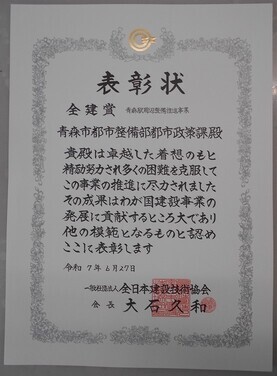 表彰状
全建賞 青森駅周辺整備推進事業
青森市都市整備部都市政策課殿
貴殿は卓越した着想のもと
精励努力され多くの困難を克服して
この事業の推進に尽力されました
その成果はわが国建設事業の
発展に貢献するところ大であり
他の模範となるものと認め
ここに表彰します
令和7年6月27日
一般社団法人 全日本建設技術協会
会長 大石久和